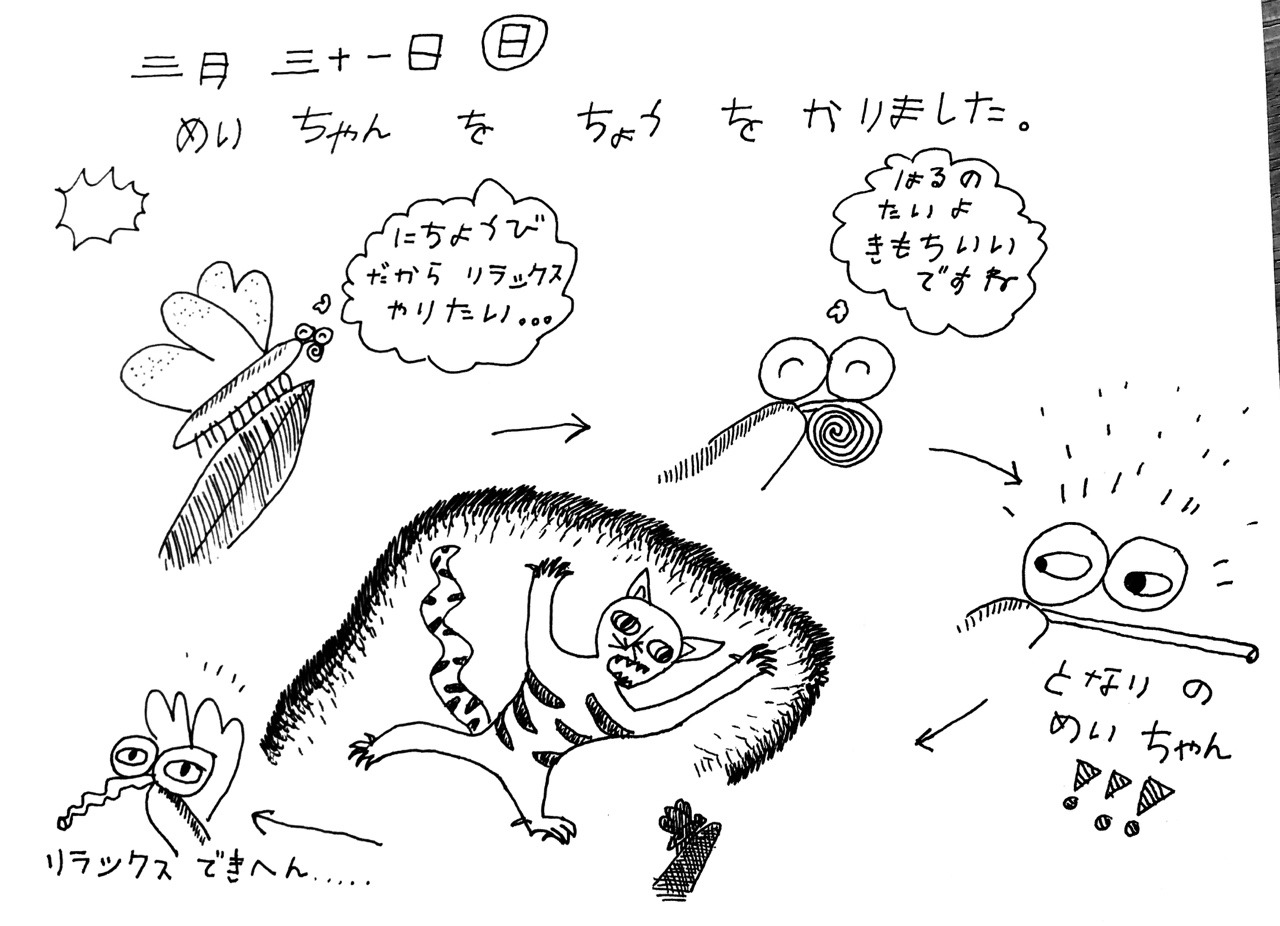 三月 三十一日 ㊐
めい ちゃん を ちょう を かりました。
にちょうび
だから リラックス
やりたい...
はるの
たいよ
きもちいい
ですね
となりの
めい ちゃん
!!!
リラックス できへん.....